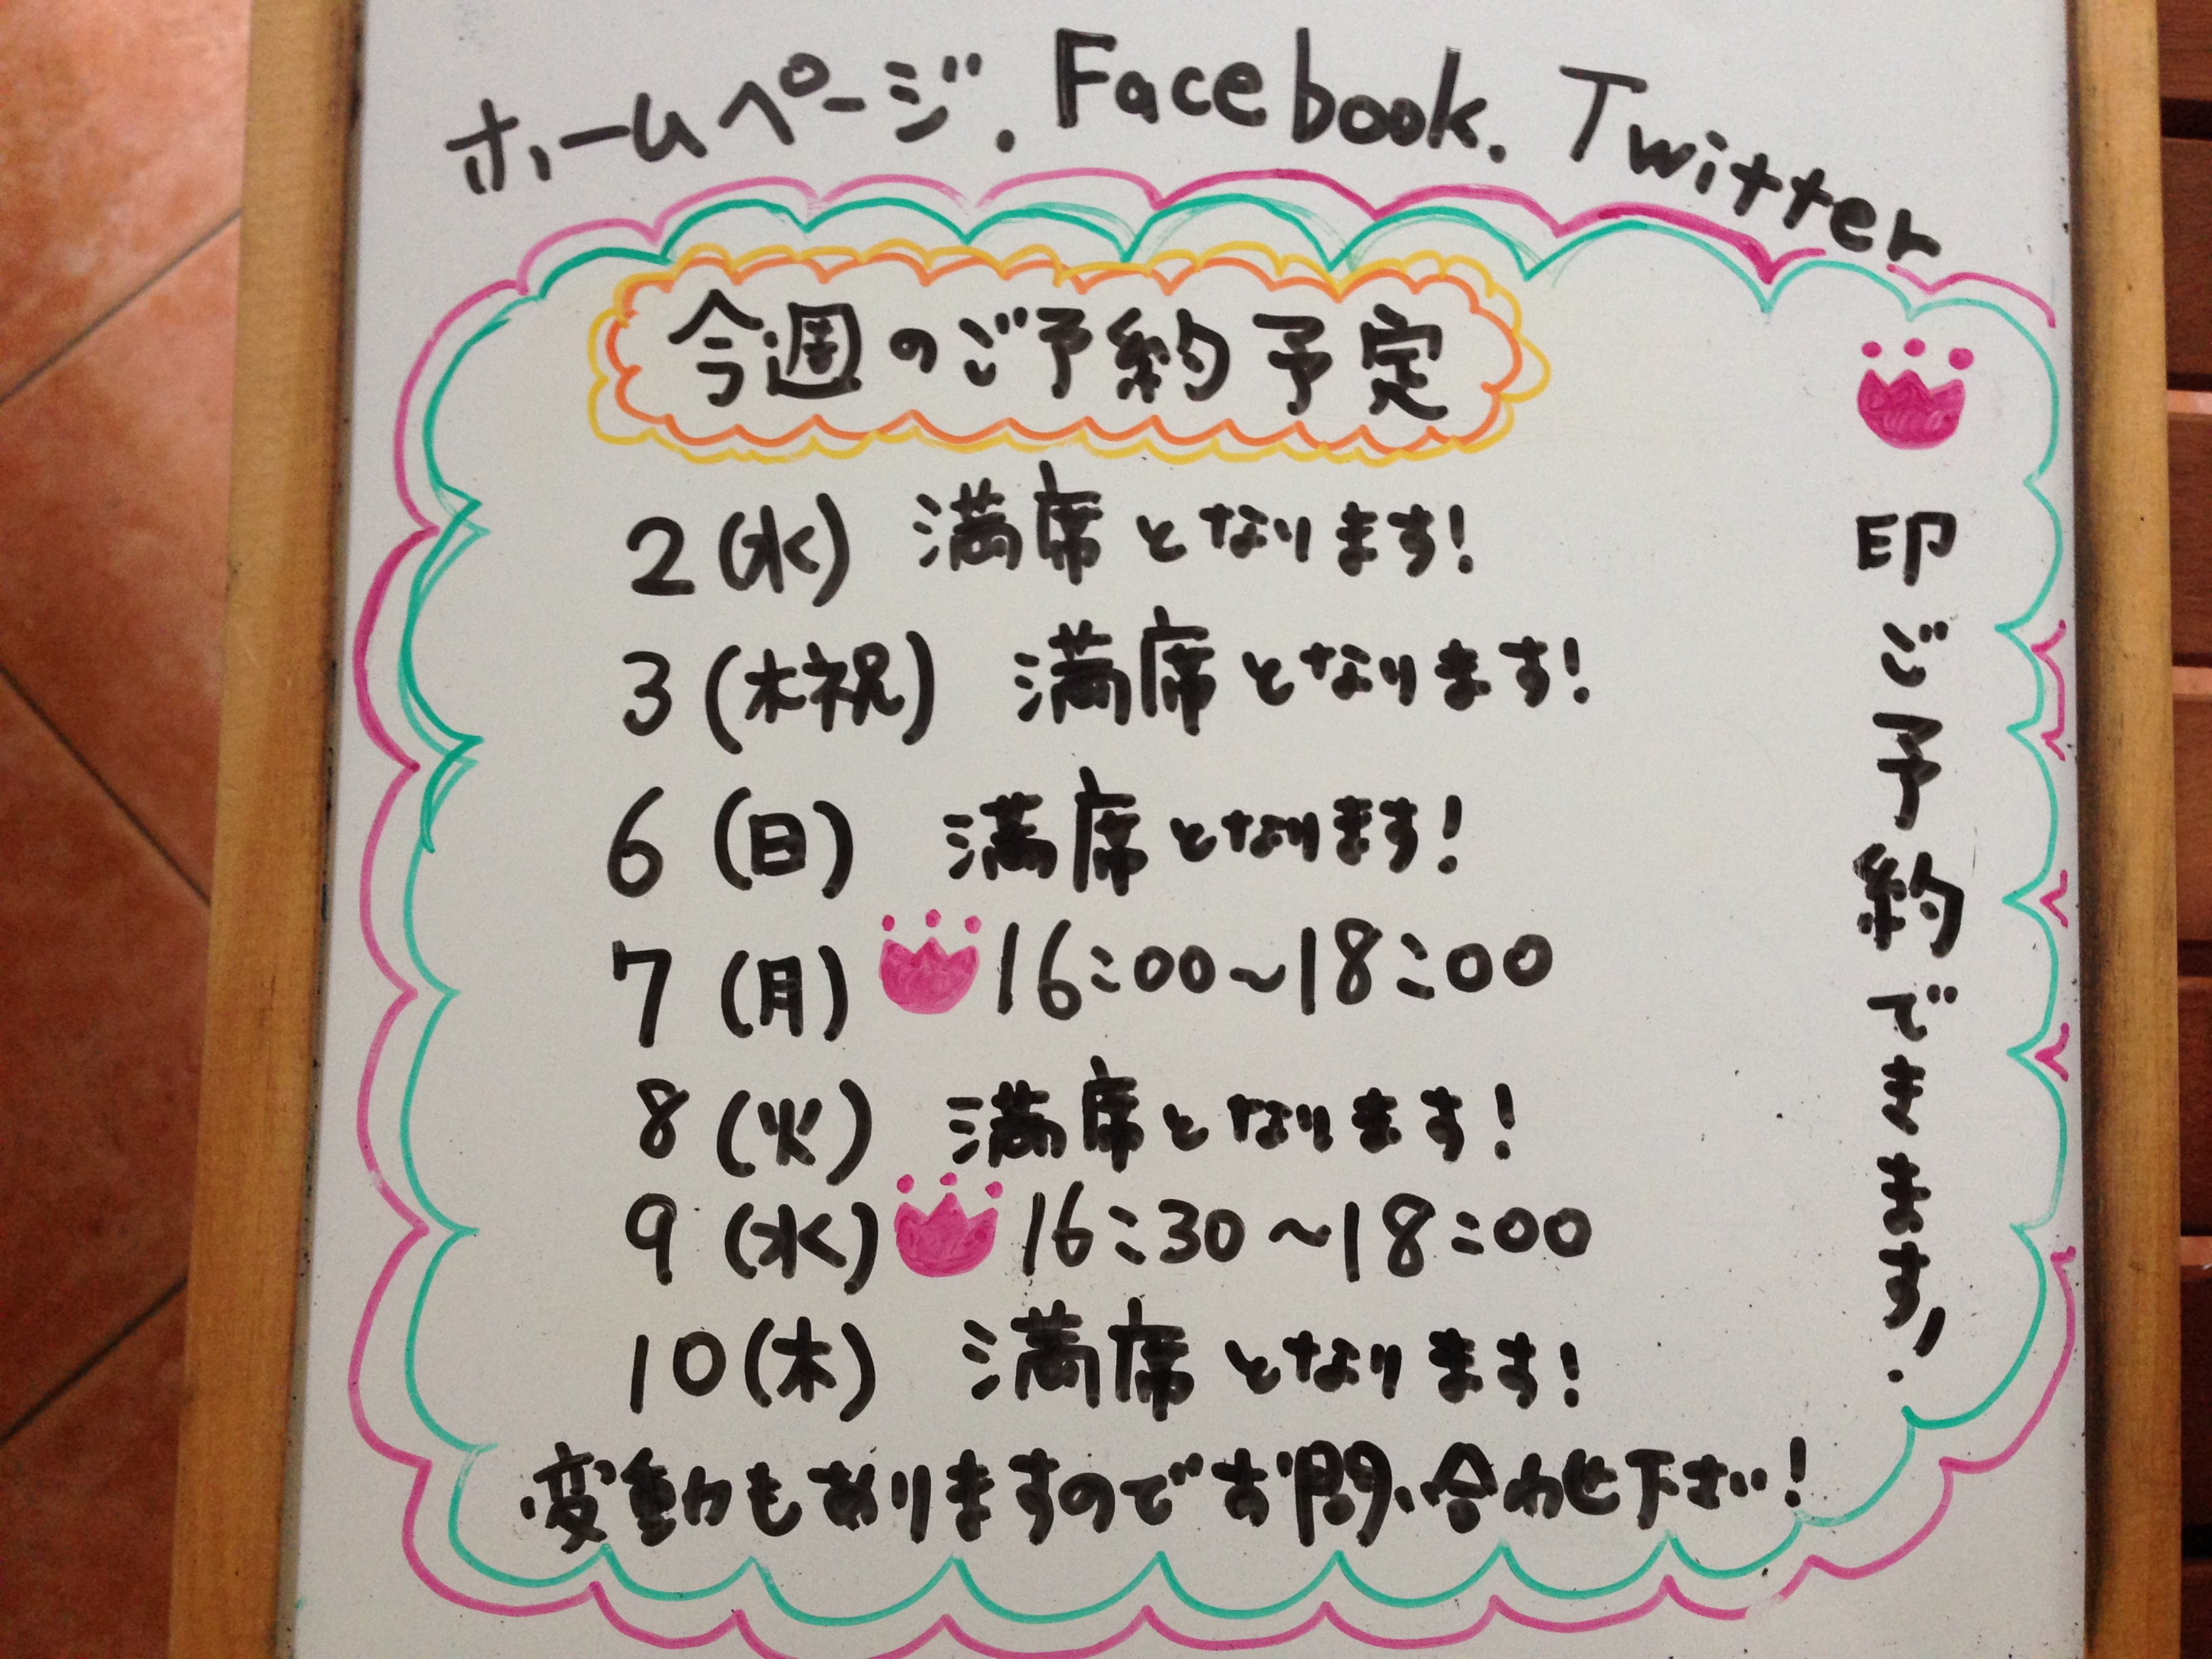 ホームページ. Facebook. Twitter
今週のご予約予定
2(水) 満席となります!
3(木祝) 満席となります!
6(日) 満席となります!
7(月) 16:00~18:00
8(火) 満席となります!
9(水) 16:30~18:00
10(木) 満席となります!
変動もありますのでお問い合わせ下さい!
印ご予約できます!